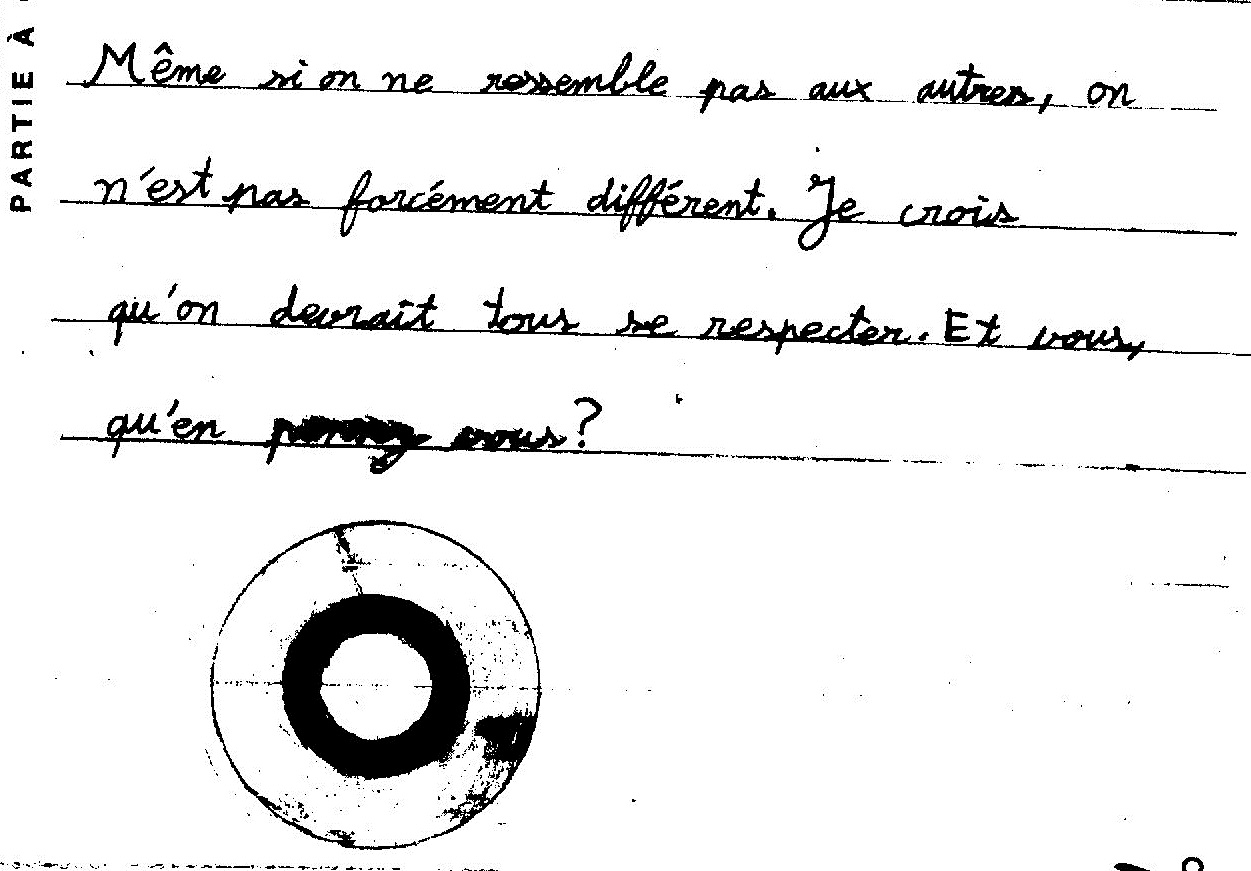 PARTIE À
Même si on ne ressemble pas aux autres, on
n'est pas forcément différent. Je crois
qu'on devrait tous se respecter. Et vous,
qu'en vous?